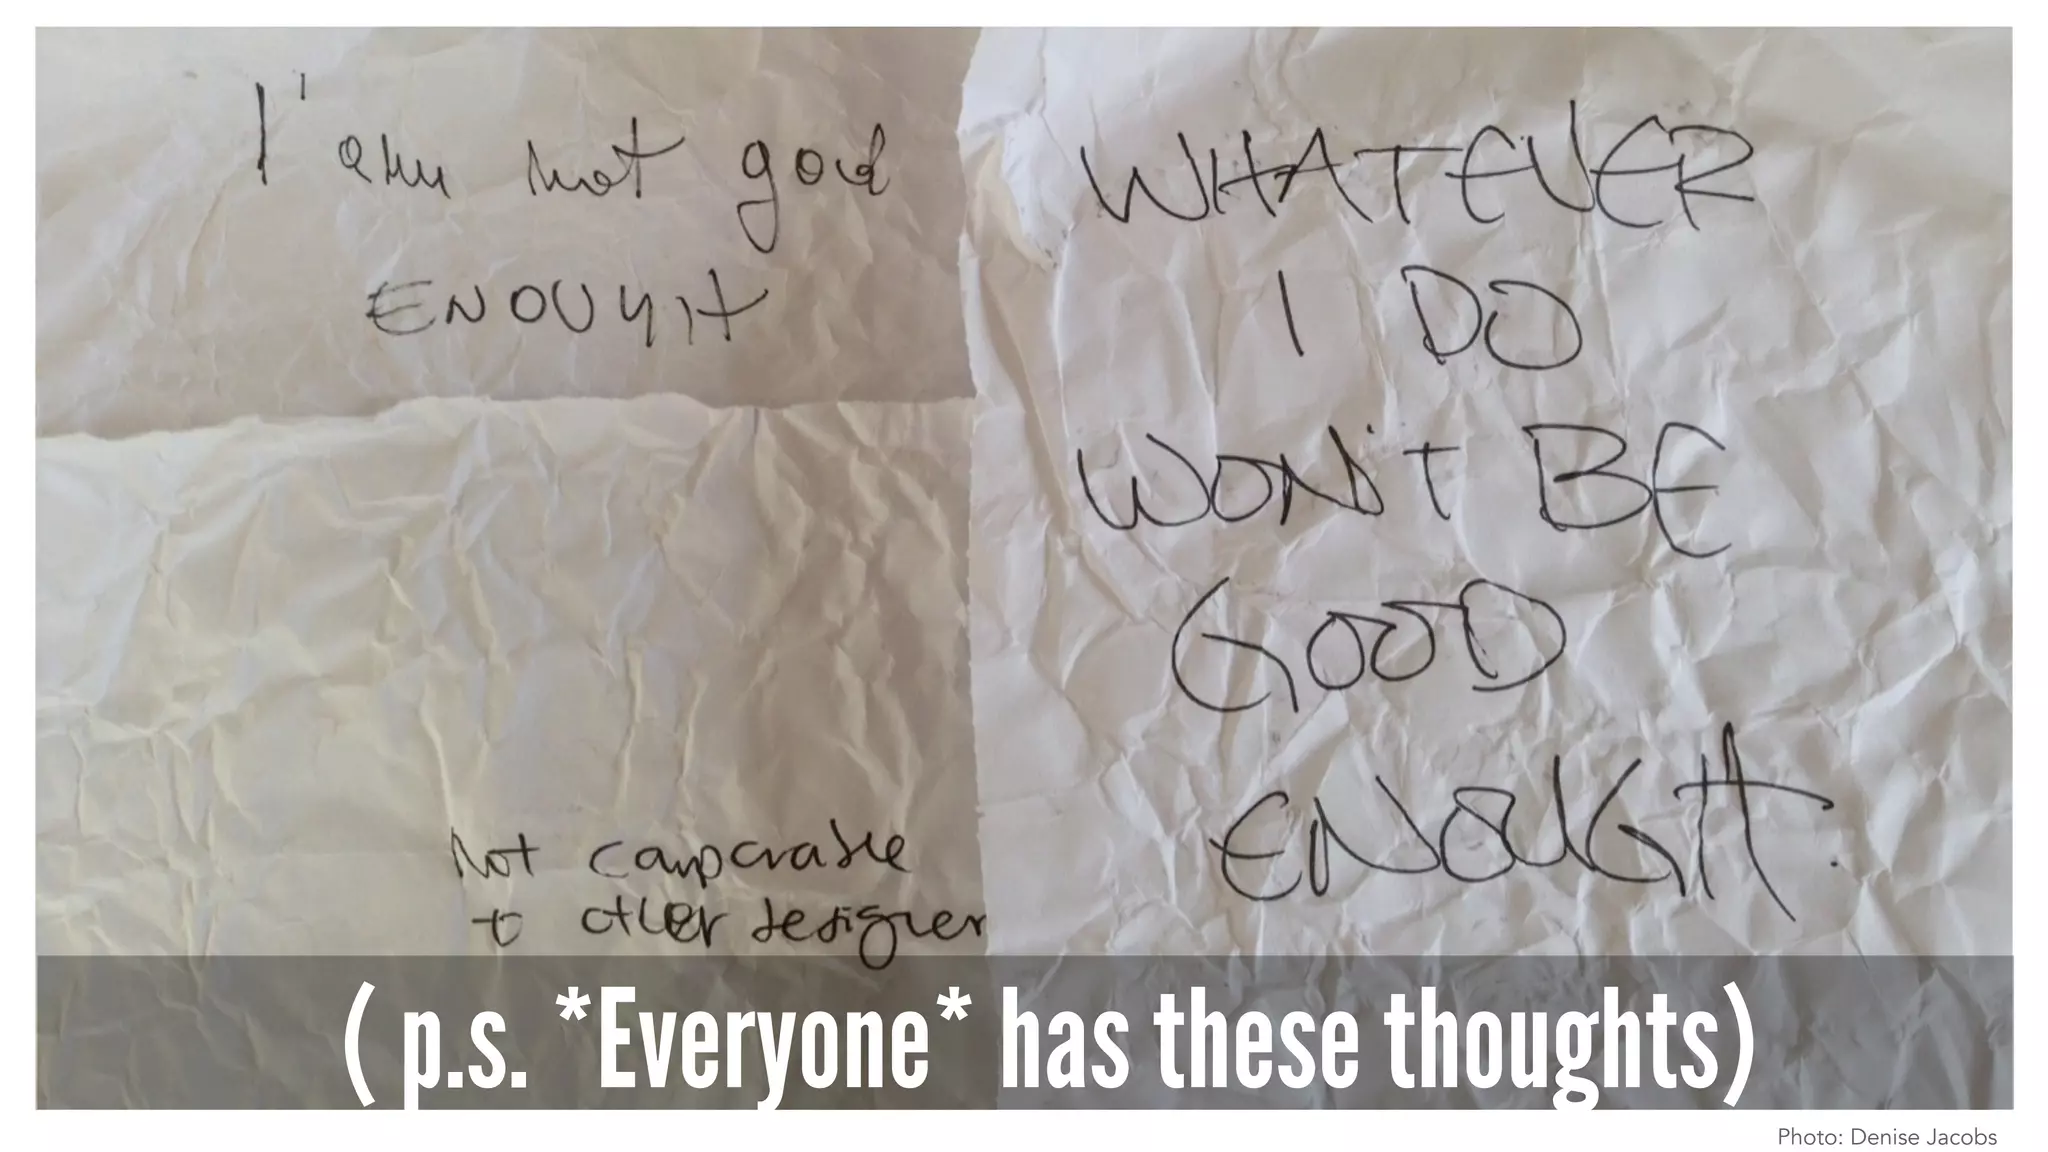 I'am not good
ENOUGH
WHATEVER
I DO
WON'T BE
GOOD
ENOUGH.
Not comparable
to other designer
( p.s. *Everyone* has these thoughts)
Photo: Denise Jacobs